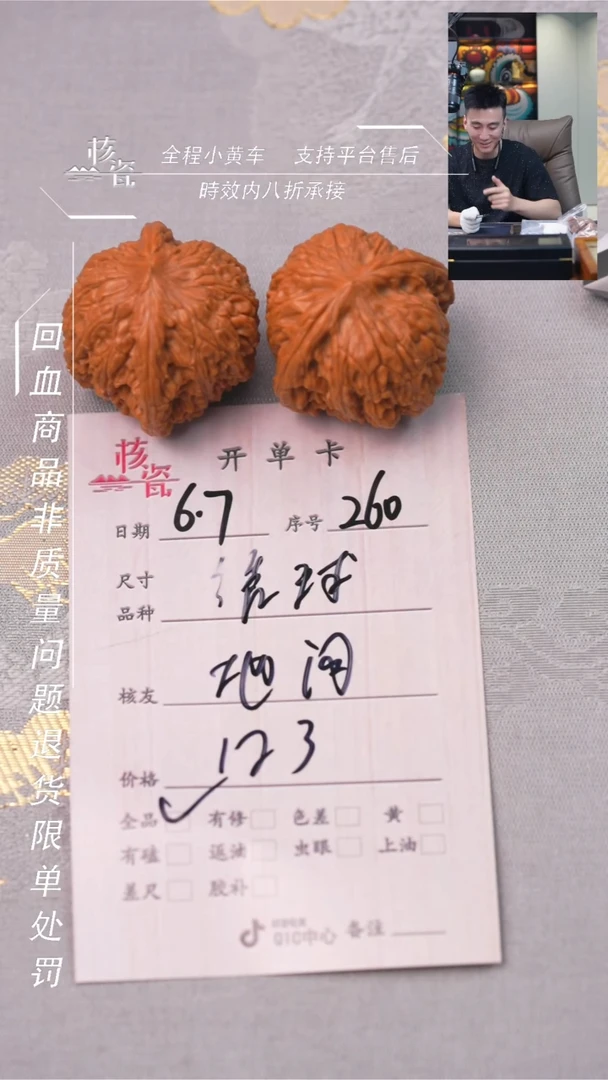 核瓷
全程小黄车 支持平台售后
時效内八折承接
回血商品非质量问题退货限单处罚
核瓷 开单卡
日期 6.7 序号 260
尺寸
品种 球
核友 地
价格 123
全品 有修 色差 黄
有磕 返油 虫眼 上油
差尺 胶补
QIC中心 备注